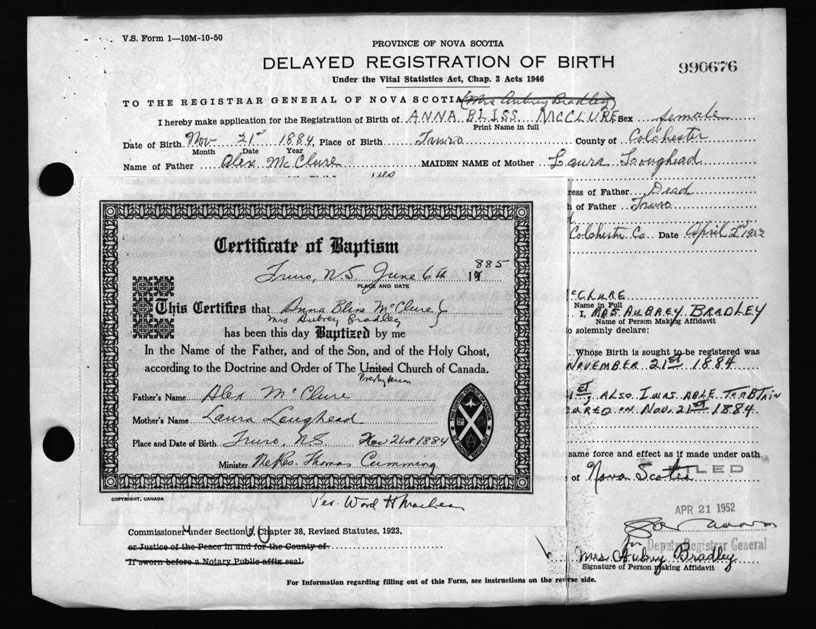 V.S. Form 1—10M-10-50
PROVINCE OF NOVA SCOTIA
DELAYED REGISTRATION OF BIRTH
990676
Under the Vital Statistics Act, Chap. 3 Acts 1946
TO THE REGISTRAR GENERAL OF NOVA SCOTIA (Mrs Aubrey Bradley)
I hereby make application for the Registration of Birth of ANNA BLISS McCLURE Sex female
Print Name in full
Date of Birth Nov 21st 1884 Place of Birth Truro County of Colchester
Month Date Year
Name of Father Alex McClure MAIDEN NAME of Mother Laura Loughead
ress of Father Dead
h of Father Truro
Colchester Co. Date April 2nd
Certificate of Baptism
Truro, N.S. June 6th 1885
PLACE AND DATE
This Certifies that Anna Bliss McClure
Mrs Aubrey Bradley
has been this day Baptized by me
In the Name of the Father, and of the Son, and of the Holy Ghost,
according to the Doctrine and Order of The United Church of Canada.
Presbyterian
Father's Name Alex McClure
Mother's Name Laura Loughead
Place and Date of Birth Truro, NS Nov 1884
Minister Thomas Cumming
COPYRIGHT, CANADA
Per. Word
McCLURE
Name in Full
I, MRS. AUBREY BRADLEY
Name of Person Making Affidavit
o solemnly declare:
Whose Birth is sought to be registered was
NOVEMBER 21st 1884
ALSO I WAS ABLE TO OBTAIN
ON NOV. 21st 1884.
same force and effect as if made under oath
of Nova Scotia
FILED
APR 21 1952
for
Deputy Registrar General
Mrs. Aubrey Bradley
Signature of Person making Affidavit
Commissioner under Section Chapter 38, Revised Statutes, 1923,
or Justice of the Peace in and for the County of
If sworn before a Notary Public affix seal.
For Information regarding filling out of this Form, see instructions on the reverse side.